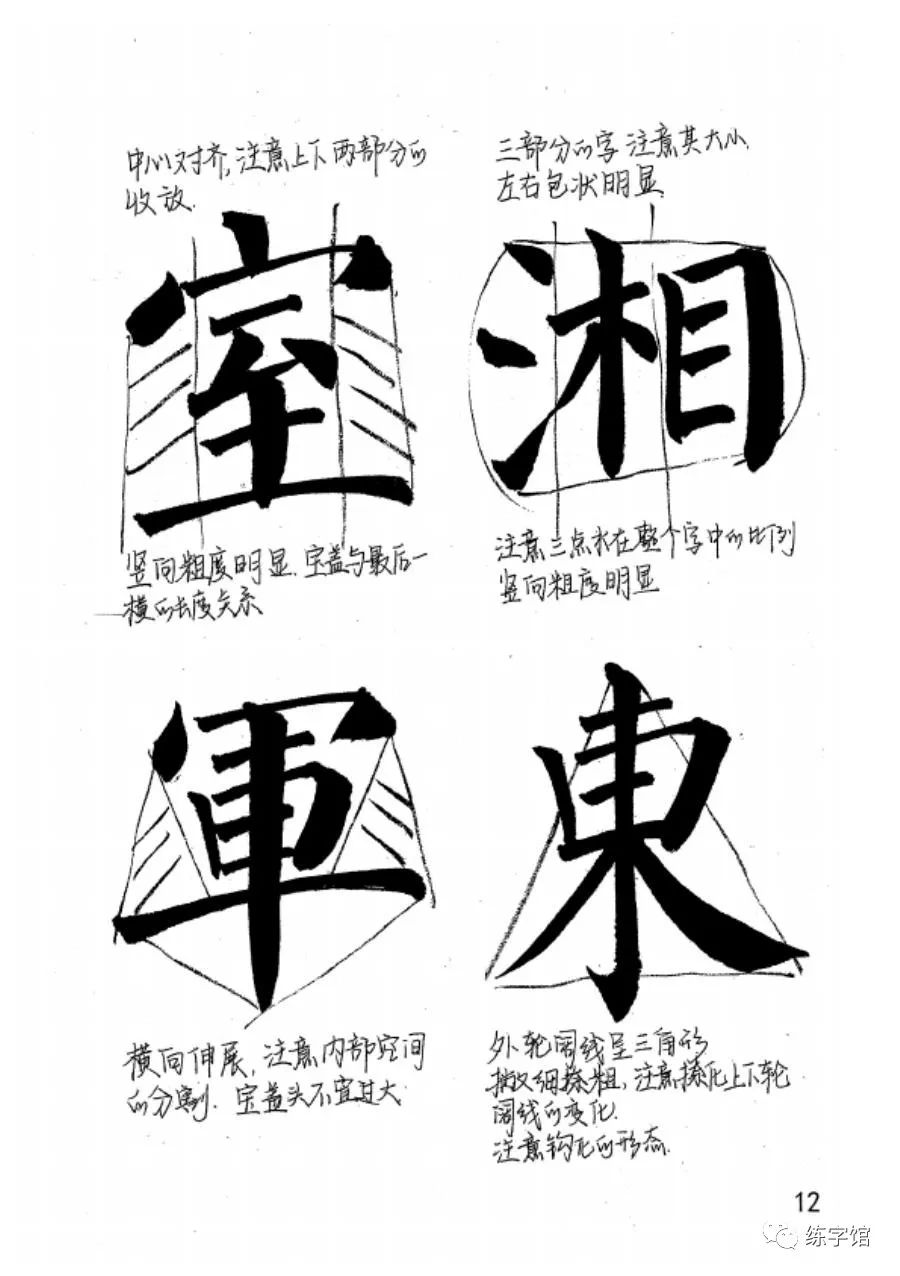 中心对齐,注意上下两部分的
收放.
室
竖向粗度明显.宝盖与最后一
横的长度关系
三部分的字 注意其大小.
左右包状明显.
湘
注意三点水在整个字中的比例
竖向粗度明显
軍
横向伸展,注意内部空间
的分割.宝盖头不宜过大.
東
外轮阔线呈三角形
撇细捺粗,注意捺化上下轮
阔线的变化.
注意钩化的形态.
12
练字馆